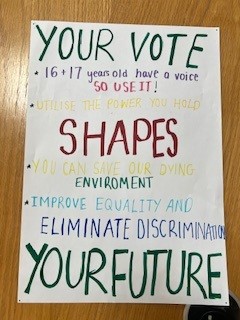 YOUR VOTE
* 16+17 years old have a voice
SO USE IT!
* UTILISE THE POWER YOU HOLD
SHAPES
* YOU CAN SAVE OUR DYING
ENVIROMENT
* IMPROVE EQUALITY AND
ELIMINATE DISCRIMINATION
YOUR FUTURE